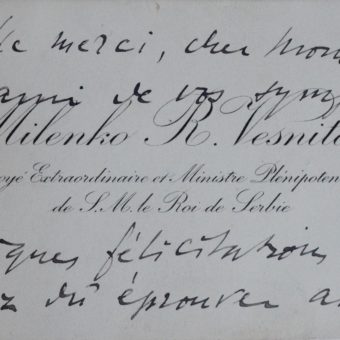 le merci, cher Mon
ami de vos symp
Milenko R. Vesnit
oyé Extraordinaire et Ministre Plénipoten
de S. M. le Roi de Serbie
ques félicitations
z dû éprouver a